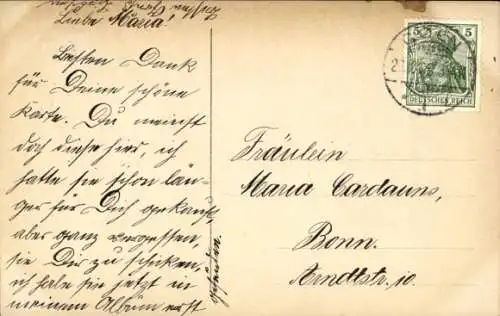 Liebe Maria!
Besten Dank
für Deine schöne
Karte. Du meinst
doch diese hier, ich
hatte sie schon län-
ger für Dich gekauft
aber ganz vergessen,
sie Dir zu schicken,
ich habe sie jetzt in
meinem Album erst
gefunden.
5 5
DEUTSCHES REICH
Fräulein
Maria Cardauns,
Bonn.
Arndtstr. 10.